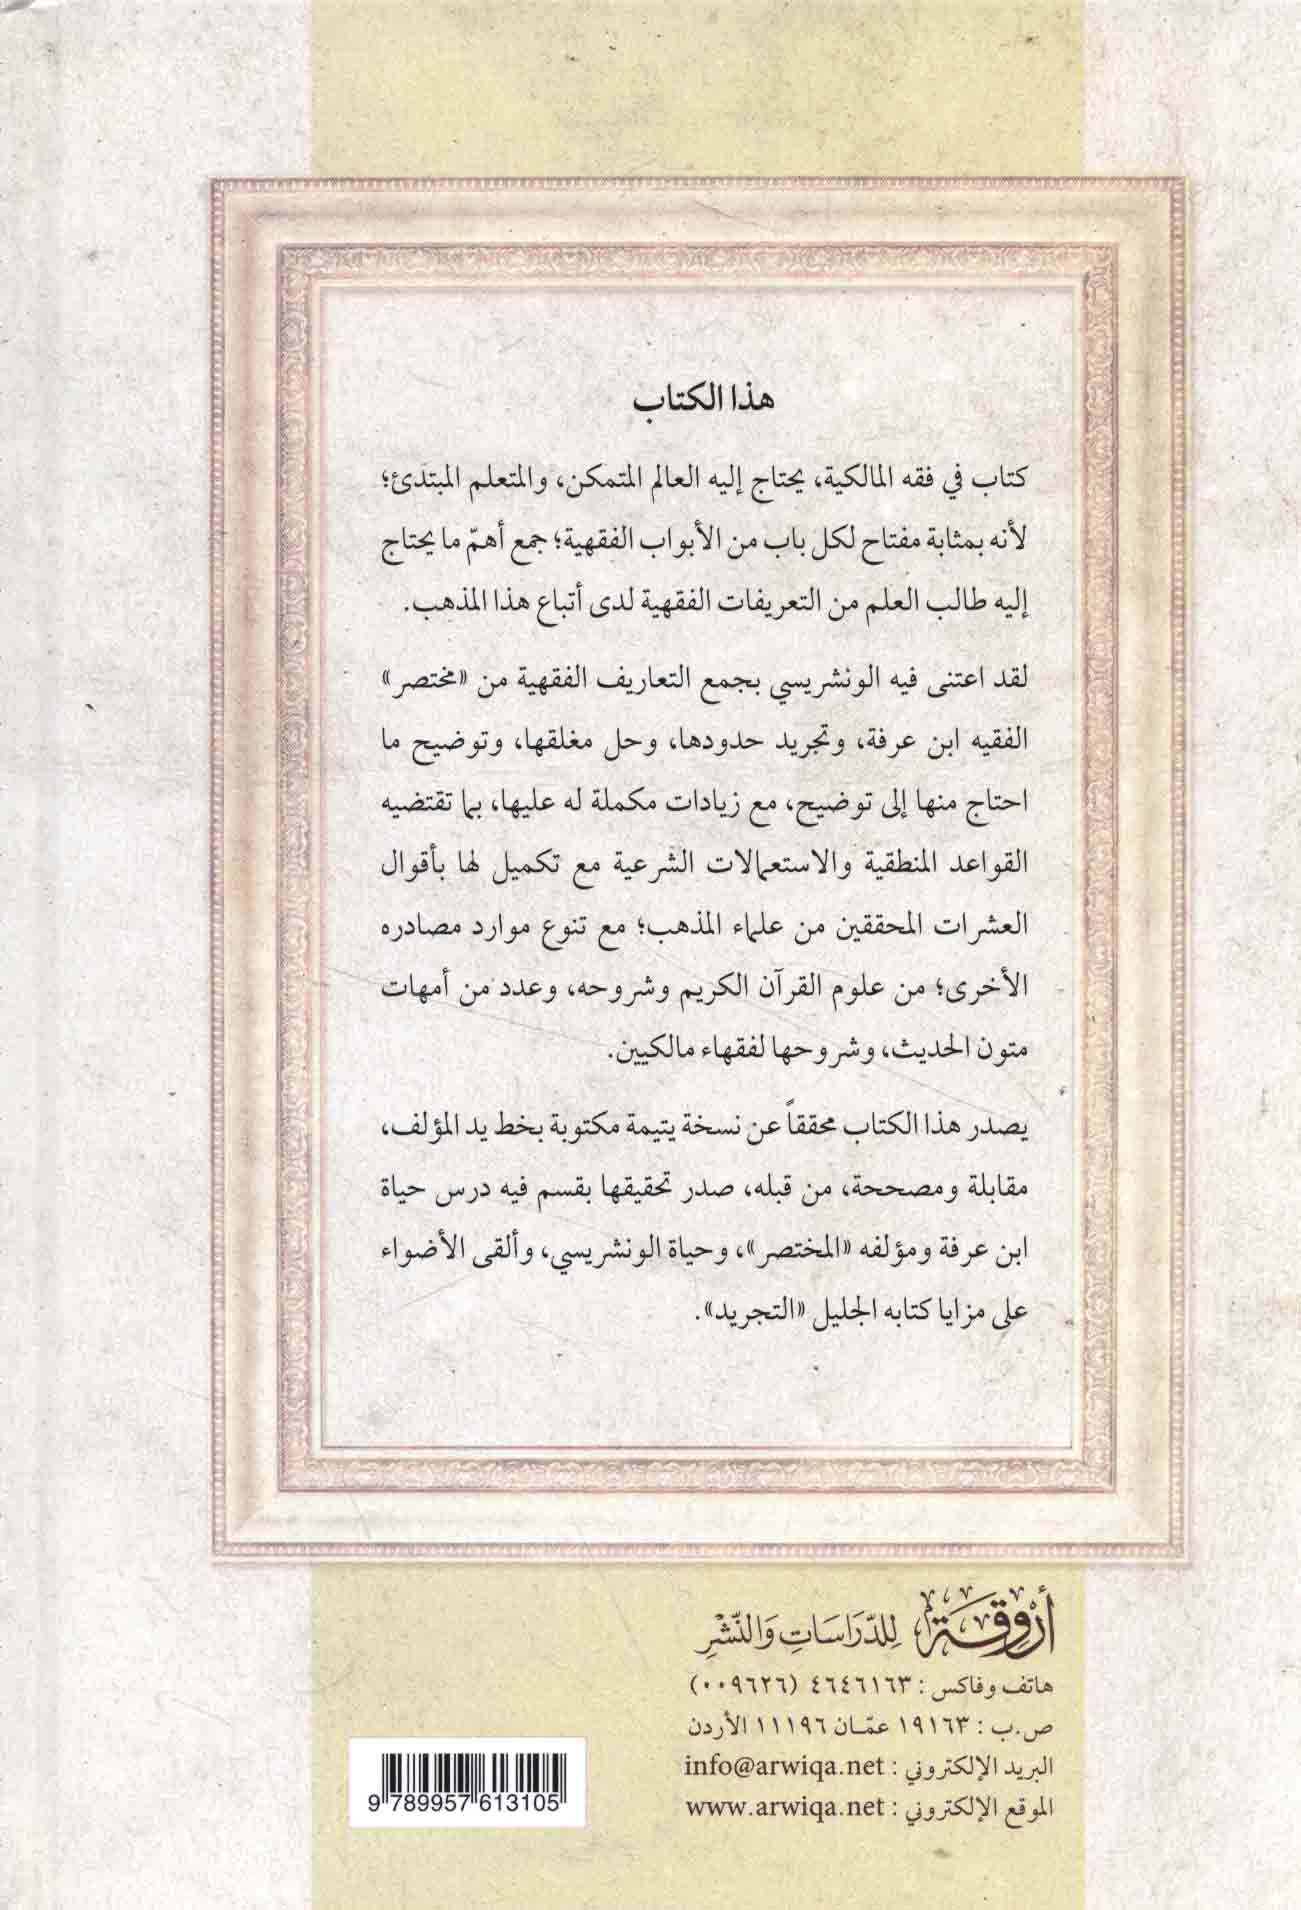 هذا الكتاب
كتاب في فقه المالكية، يحتاج إليه العالم المتمكن، والمتعلم المبتدئ؛
لأنه بمثابة مفتاح لكل باب من الأبواب الفقهية؛ جمع أهمّ ما يحتاج
إليه طالب العلم من التعريفات الفقهية لدى أتباع هذا المذهب.
لقد اعتنى فيه الونشريسي بجمع التعاريف الفقهية من «مختصر»
الفقيه ابن عرفة، وتجريد حدودها، وحل مغلقها، وتوضيح ما
احتاج منها إلى توضيح، مع زيادات مكملة له عليها، بما تقتضيه
القواعد المنطقية والاستعمالات الشرعية مع تكميل لها بأقوال
العشرات المحققين من علماء المذهب؛ مع تنوع موارد مصادره
الأخرى؛ من علوم القرآن الكريم وشروحه، وعدد من أمهات
متون الحديث، وشروحها لفقهاء مالكيين.
يصدر هذا الكتاب محققاً عن نسخة يتيمة مكتوبة بخط يد المؤلف،
مقابلة ومصححة، من قبله، صدر تحقيقها بقسم فيه درس حياة
ابن عرفة ومؤلفه «المختصر»، وحياة الونشريسي، وألقى الأضواء
على مزايا كتابه الجليل «التجريد».
أَرْوِقَة لِلدِّرَاسَاتِ وَالنَّشْرِ
هاتف وفاكس : ٤٦٤٦١٦٣ (٠٠٩٦٢٦)
ص.ب : ١٩١٦٣ عمّان ١١١٩٦ الأردن
البريد الإلكتروني : info@arwiqa.net
الموقع الإلكتروني : www.arwiqa.net
9 789957 613105